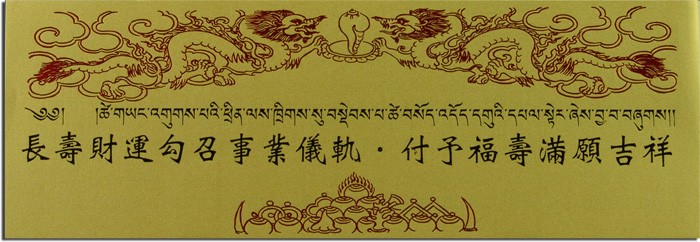 ༄༅། །ཚེ་གཡང་འགུགས་པའི་ཕྲིན་ལས་ཁྲིགས་སུ་བསྡེབས་པ་ཚེ་བསོད་འདོད་དགུའི་དཔལ་སྟེར་ཞེས་བྱ་བ་བཞུགས།།
長壽財運勾召事業儀軌·付予福壽滿願吉祥